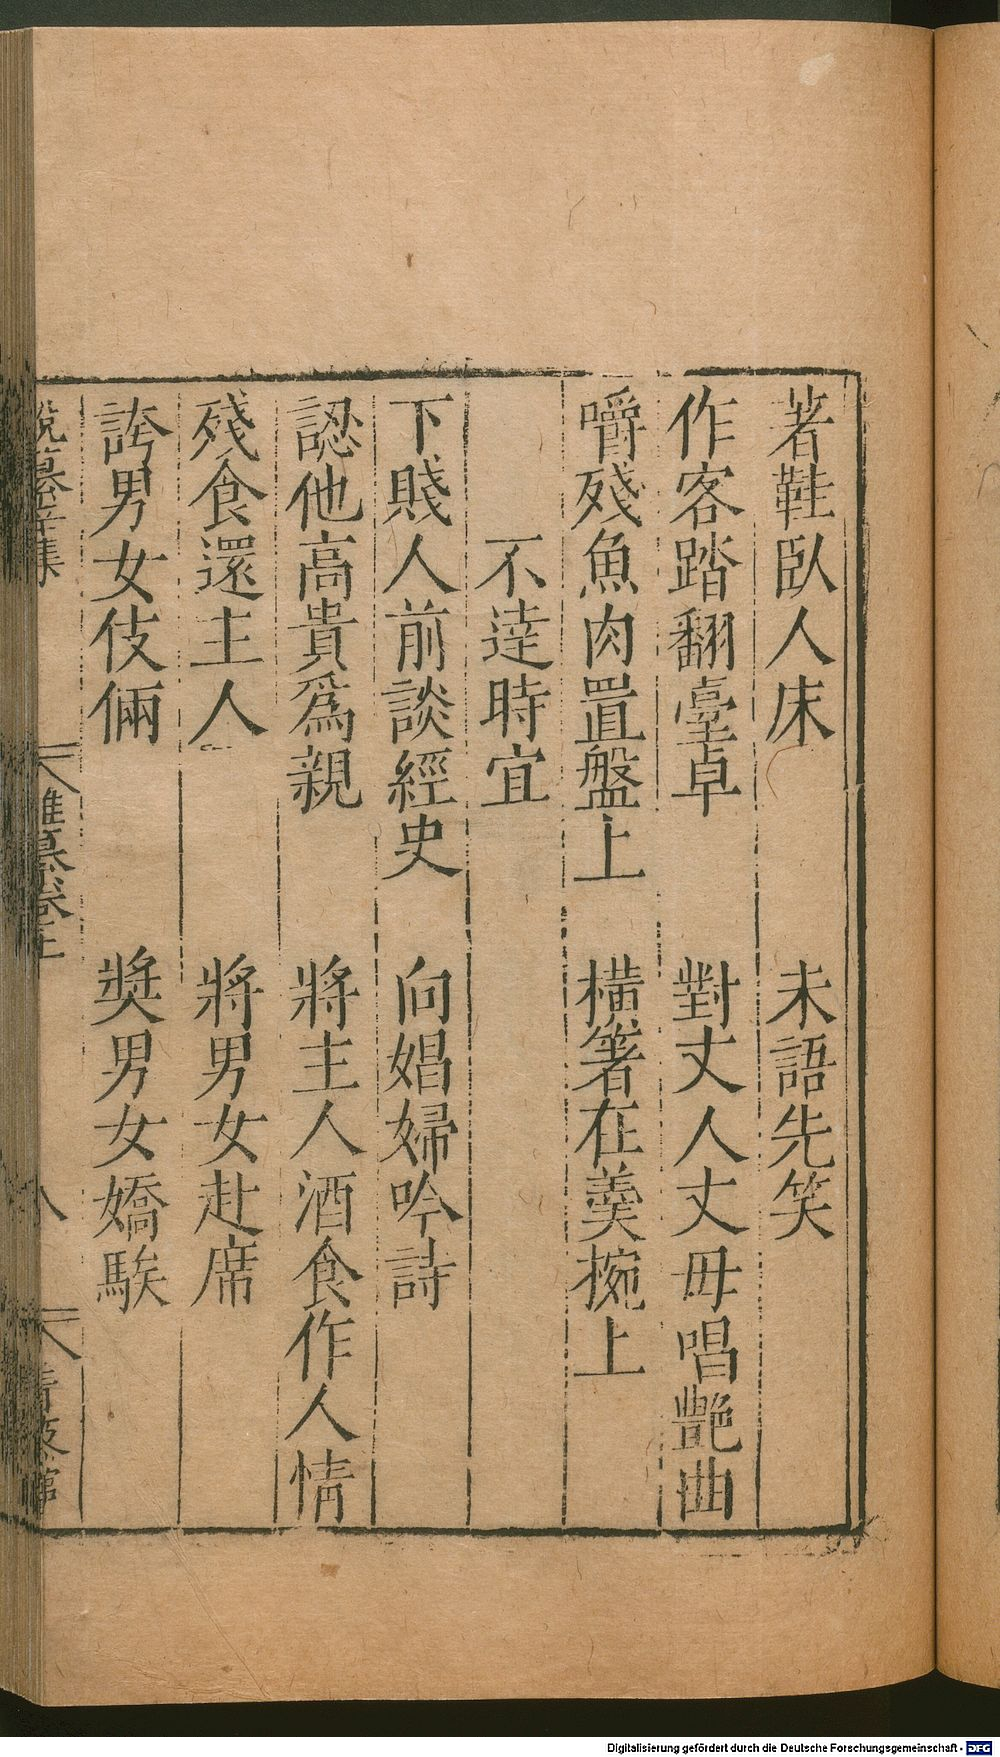 著鞋臥人床　未語先笑
作客踏翻臺卓　對丈人丈毋唱艷曲
嚼殘魚肉置盤上　橫箸在羹椀上
不達時宜
下賤人前談經史　向娼婦吟詩
認他高貴爲親　將主人酒食作人情
殘食還主人　將男女赴席
誇男女伎倆　獎男女嬌騃
雜纂卷上
八
Digitalisierung gefördert durch die Deutsche Forschungsgemeinschaft - DFG